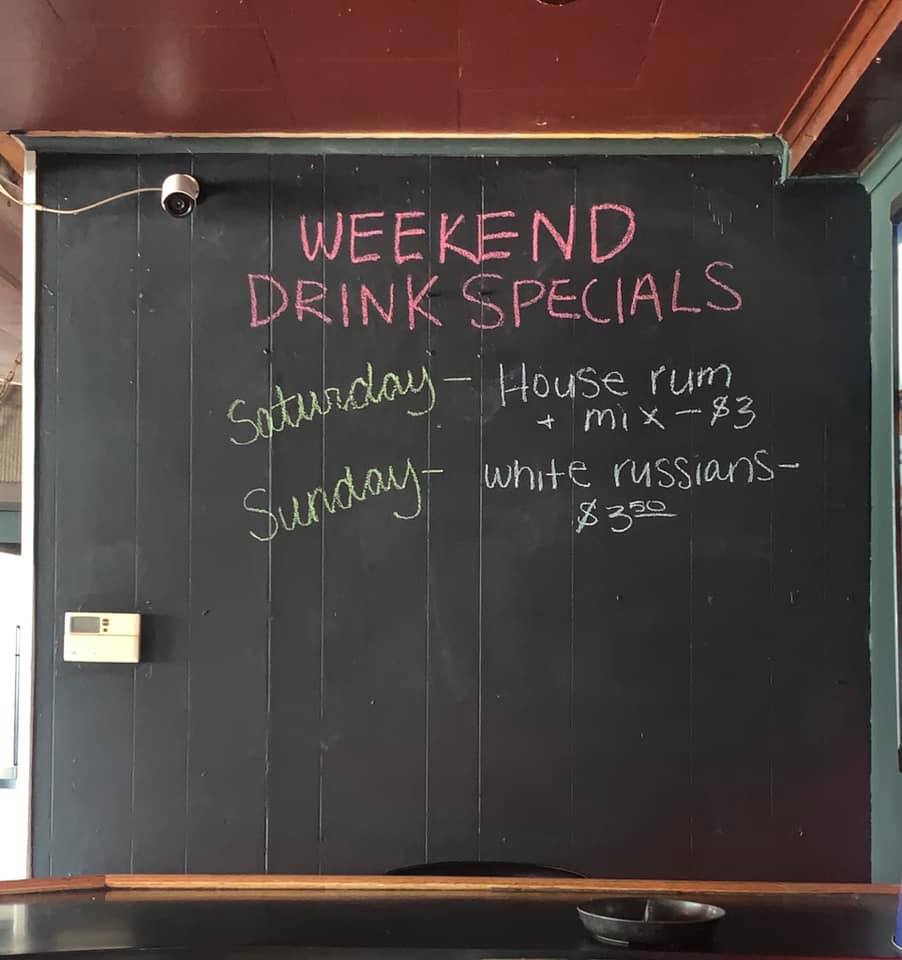 WEEKEND
DRINK SPECIALS
Saturday - House rum
+ mix - $3
Sunday - white russians -
$3.50